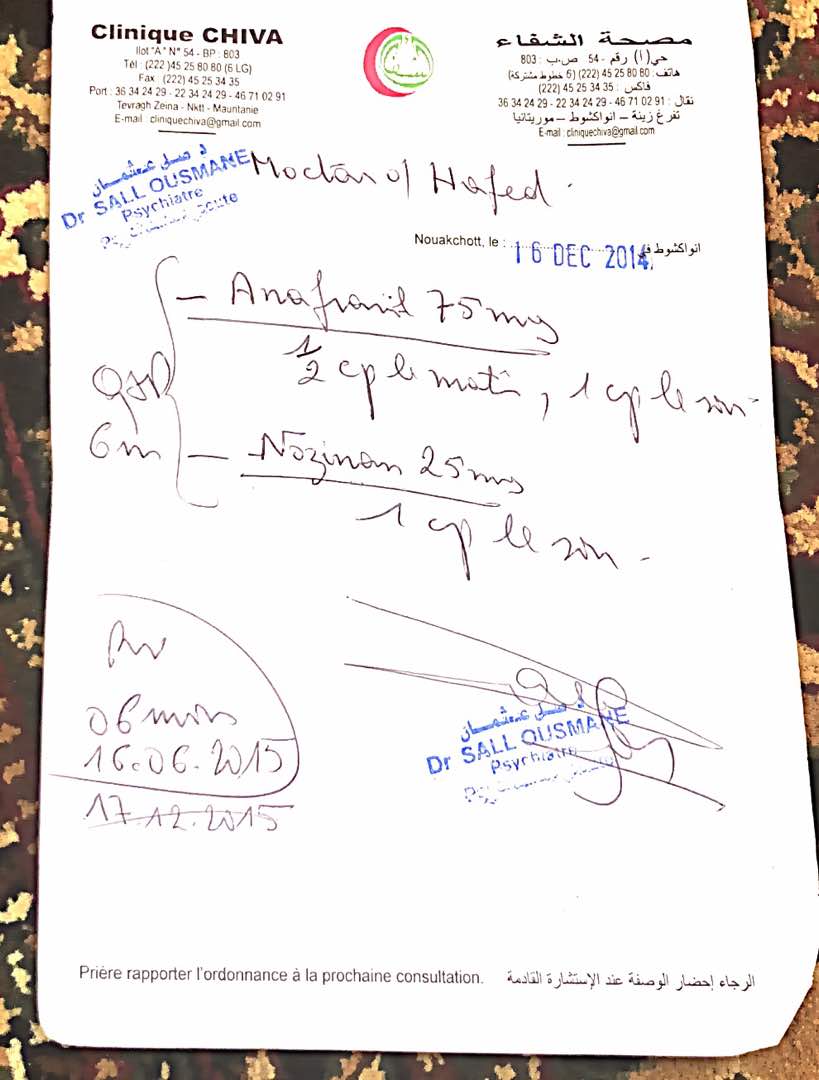 Clinique CHIVA
Ilot "A" N° 54 - BP : 803
Tél : (222 )45 25 80 80 (6 LG)
Fax : (222) 45 25 34 35
Port : 36 34 24 29 - 22 34 24 29 - 46 71 02 91
Tevragh Zeina - Nktt - Mauritanie
E-mail : cliniquechiva@gmail.com
مصحة الشفاء
حي(ا) رقم - 54 ص.ب : 803
هاتف : 80 80 25 45 (222) (6 خطوط مشتركة)
فاكس : 35 34 25 45 (222)
نقال : 91 02 71 46 - 29 24 34 22 - 29 24 34 36
تفرغ زينة – انواكشوط – موريتانيا
E-mail : cliniquechiva@gmail.com
د صل عثمان
Dr SALL OUSMANE
Psychiatre
Moctar o/ Hafed .
Nouakchott, le : 16 DEC 2014 انواكشوط في
- Anafranil 75 mg
1/2 cp le matin, 1 cp le soir
QSP
6 m
- Nozinan 25 mg
1 cp le soir -
RV
06 mois
16.06.2015
17.12.2015
د صل عثمان
Dr SALL OUSMANE
Psychiatre
Prière rapporter l'ordonnance à la prochaine consultation. الرجاء إحضار الوصفة عند الإستشارة القادمة